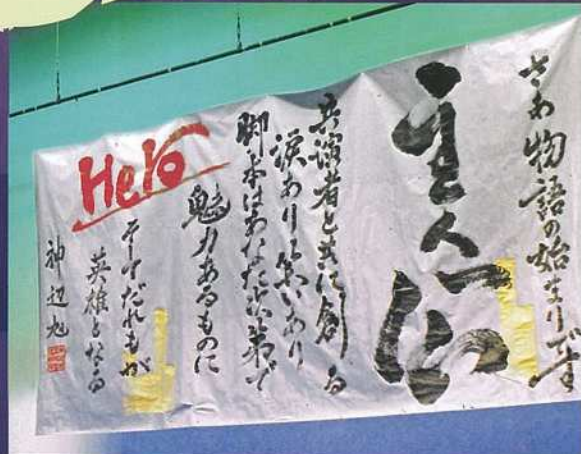 さあ物語の始まりです
主人公
共演者と共に創る
涙あり笑いあり
脚本はあなた次第で
魅力あるものに
Hero
そしてだれもが
英雄となる
神辺旭